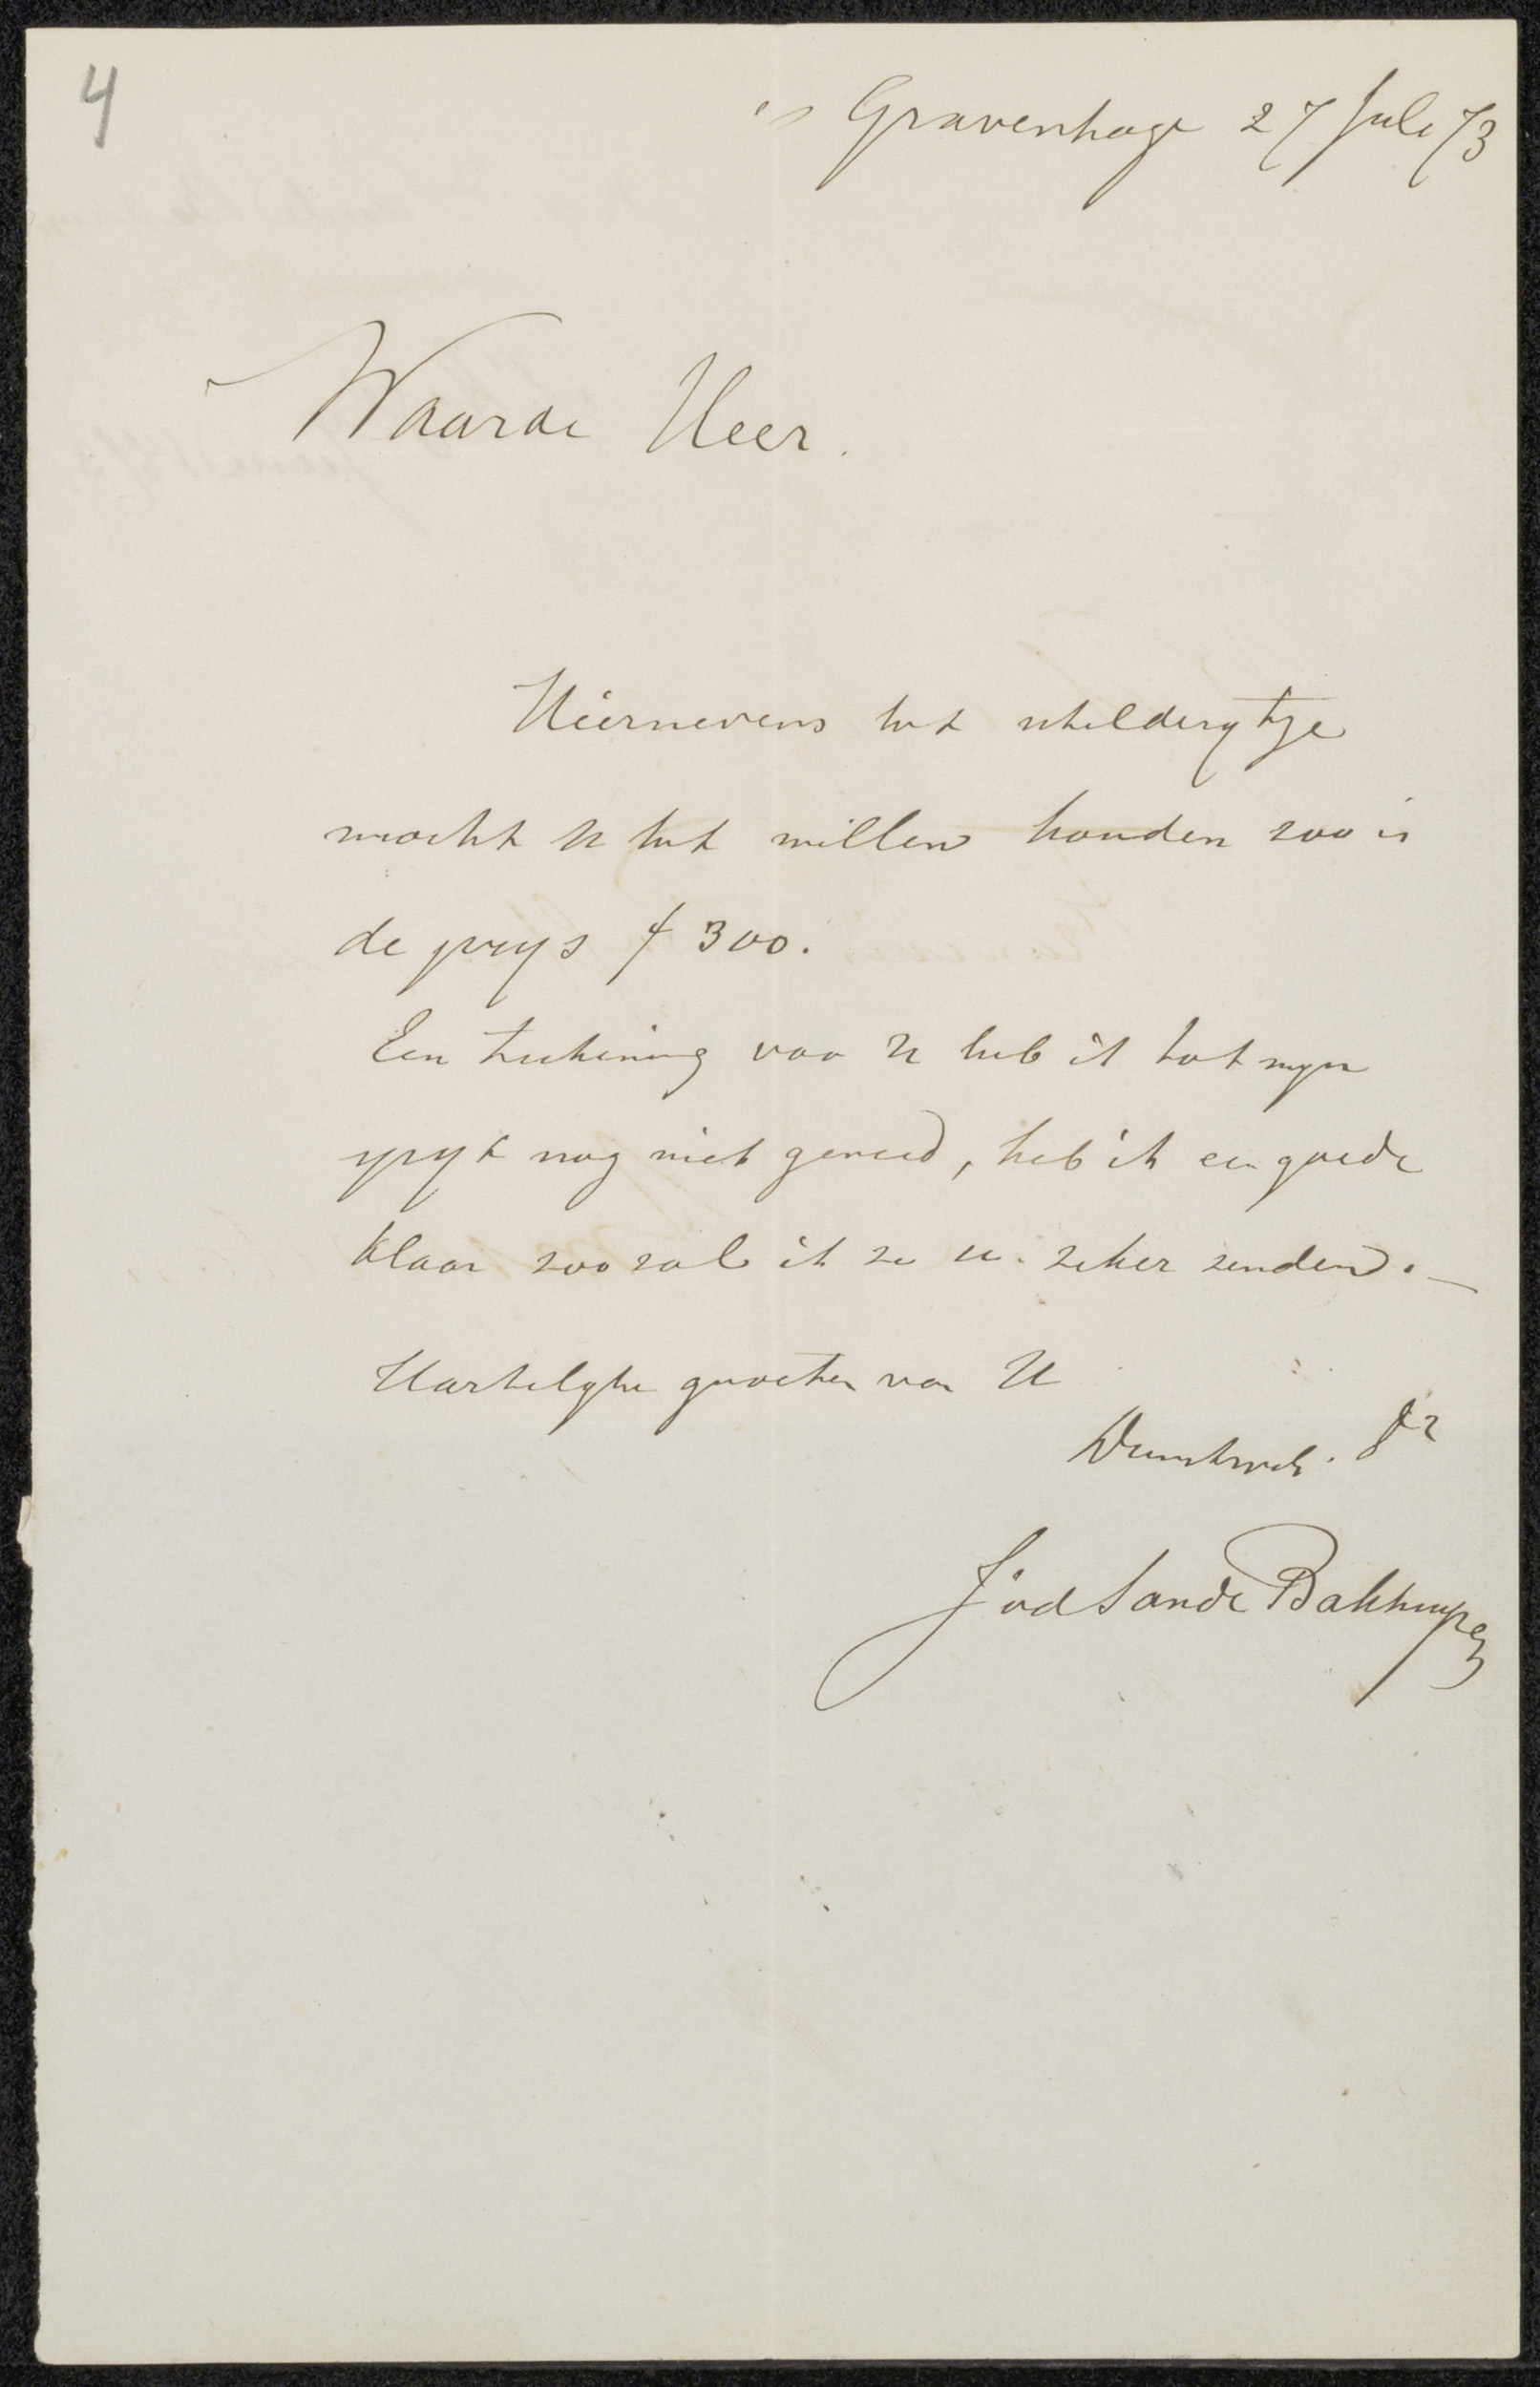 4
's Gravenhage 27 Juli 73
Waarde Heer.
Hiernevens het schilderytje
mocht U het willen houden zoo is
de prys f 300.
Een teekening voor U heb ik tot myn
spyt nog niet gereed, heb ik een goede
klaar zoo zal ik ze U zeker zenden. —
Hartelyke groeten van U
Dienstwill. Dr
J vd Sande Bakhuyzen